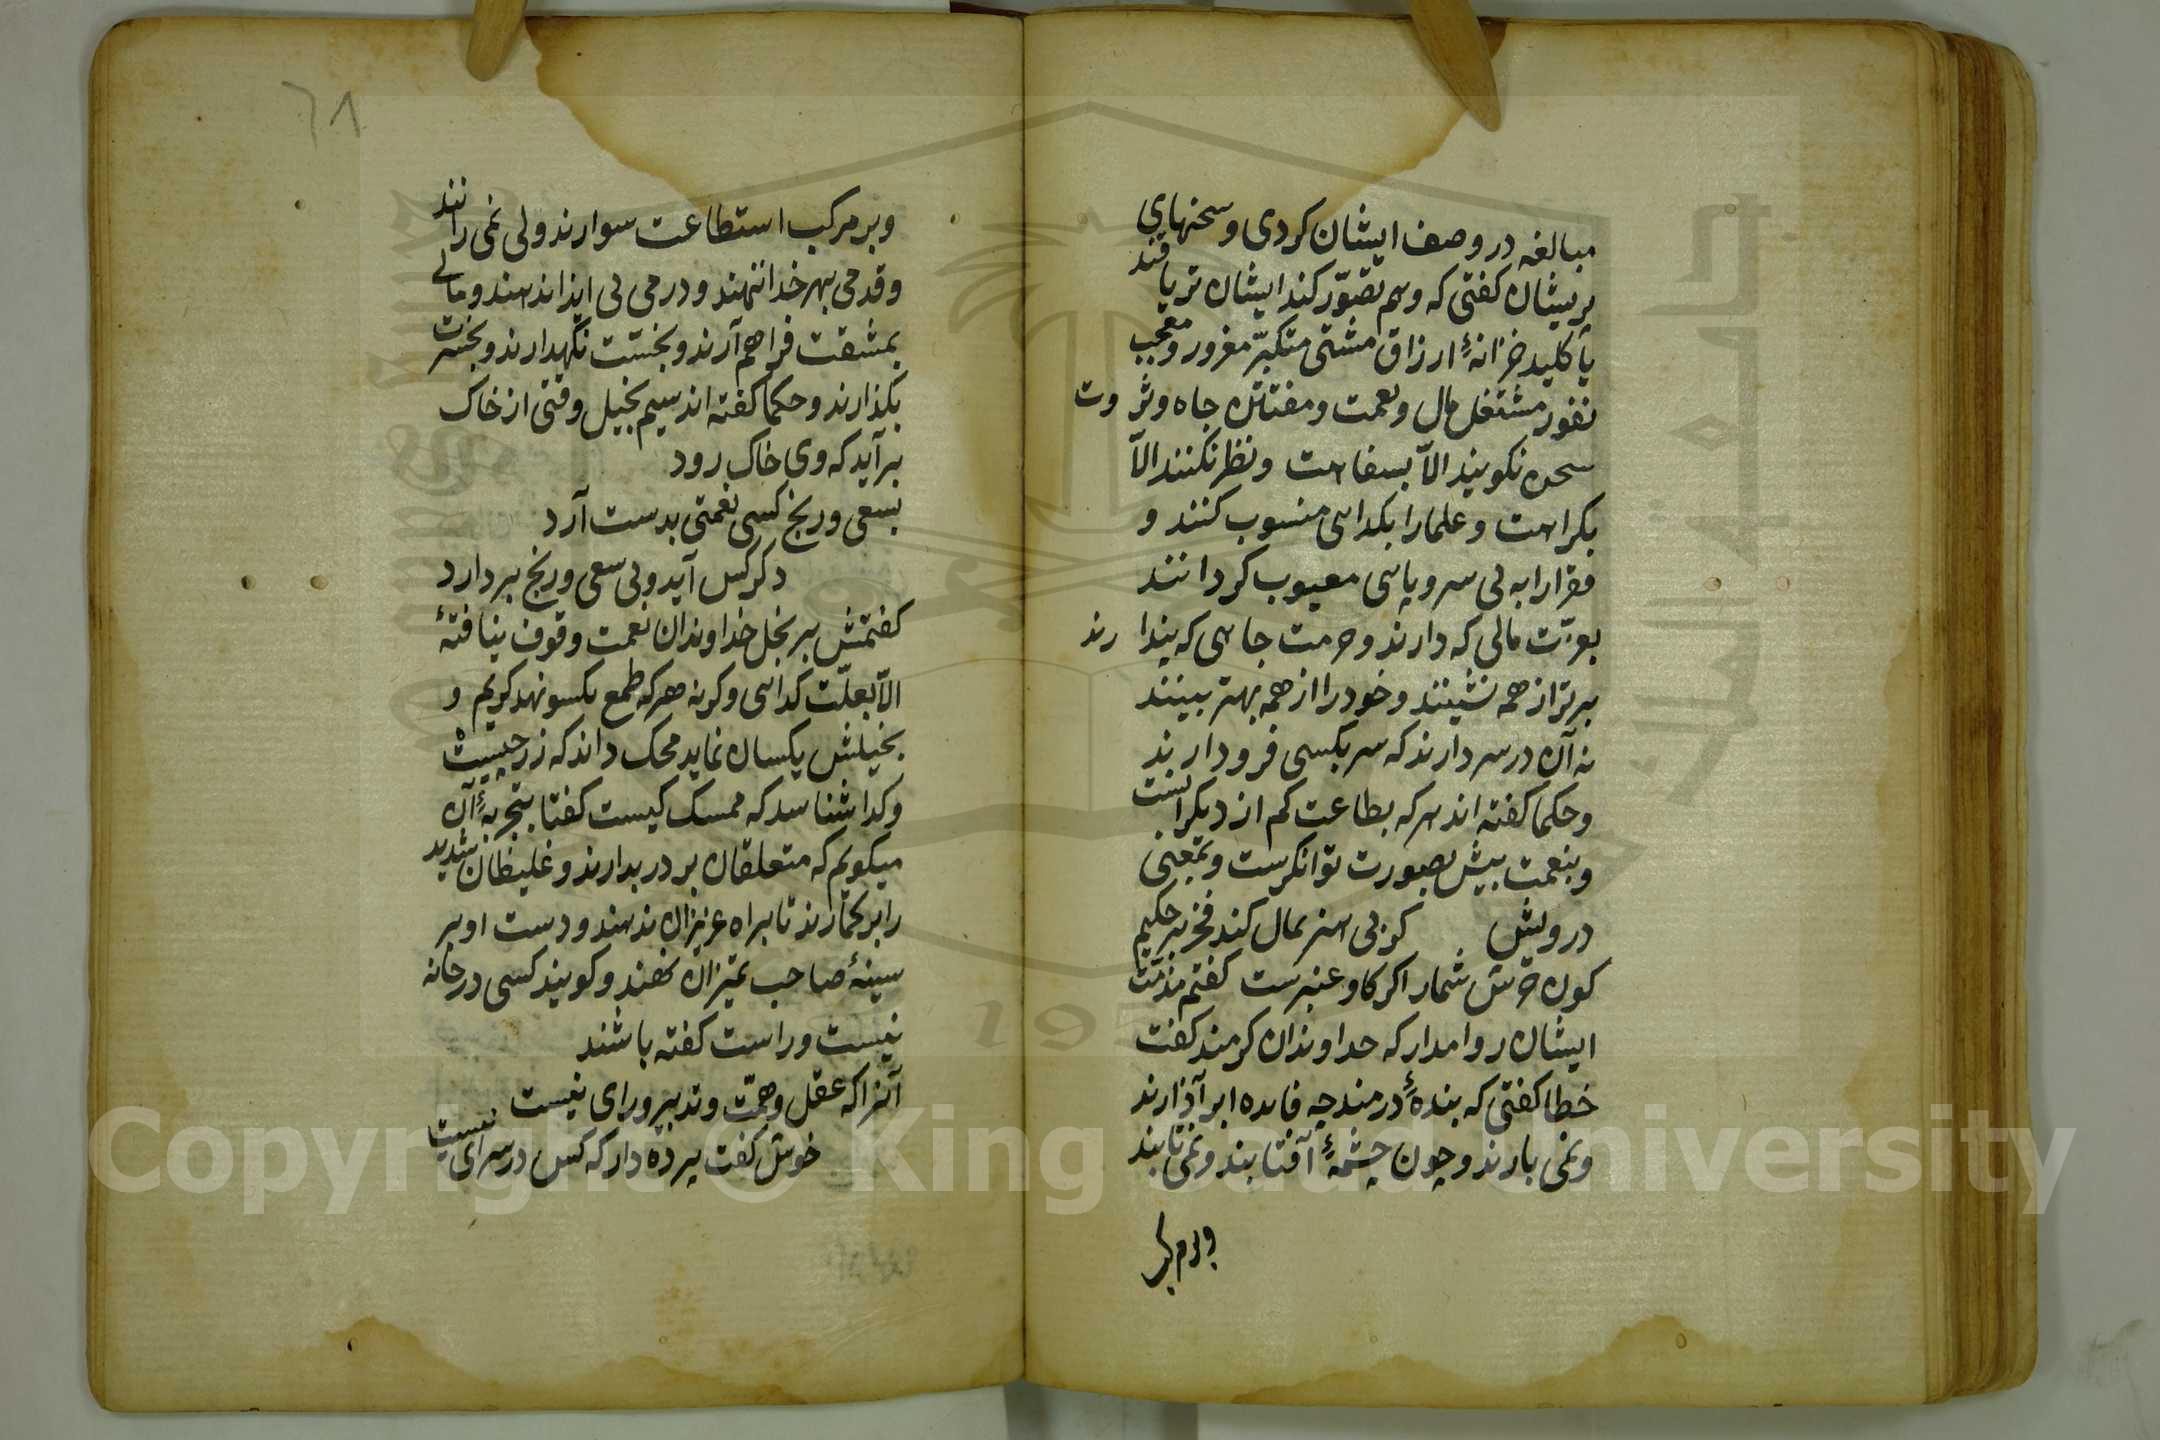 مبالغه در وصف ایشان کردی و سخنهای
پریشان کفتی که وهم تصوّر کند ایشان تریاقند
یا کلید خزانهٔ ارزاق مشتی متکبّر مغرور و معجب
نفور مشتغل مال و نعمت و مفتتن جاه و ثروت
سخن نکویند الاّ بسفاهت و نظر نکنند الاّ
بکراهت و علما را بکدایی منسوب کنند و
فقرا را به بی سر و پایی معیوب کردانند
بعزّت مالی که دارند و حرمت جاهی که پندارند
برتر از همه نشینند و خود را از همه بهتر بینند
نه آن در سر دارند که سر بکسی فرود آرند
و حکما کفته اند هر که بطاعت کم از دیکرانست
و بنعمت بیش بصورت توانکرست و بمعنی
درویش کر بی هنر بمال کند فخر بر حکیم
کون خرش شمار اکر کاو عنبرست کفتم مذمّت
ایشان روا مدار که خداوندان کرمند کفت
خطا کفتی که بندهٔ درمند چه فایده ابر آذارند
و نمی بارند و چون چشمهٔ آفتابند و نمی تابند
و بر مرکب
68
و بر مرکب استطاعت سوارند ولی نمی رانند
و قدمی بهر خدا ننهند و درمی بی ایذا ندهند و مالی
بمشقت فراهم آرند و بخسّت نکهدارند و بحسرت
بکذارند و حکما کفته اند سیم بخیل وقتی از خاک
برآید که وی خاک رود
بسعی و رنج کسی نعمتی بدست آرد
دکر کس آید و بی سعی و رنج بردارد
کفتمش بر بخل خداوندان نعمت وقوف نیافتهٔ
الاّ بعلّت کدایی و کرنه هر که طمع یکسو نهد کریم و
بخیلش یکسان نماید محک داند که زر چیست
و کدا شناسد که ممسک کیست کفتا بتجربهٔ آن
میکویم که متعلقان بر در بدارند و غلیظان شدید
را برکمارند تا براه عزیزان ندهند و دست او بر
سینهٔ صاحب تمیزان نهند و کویند کسی در خانه
نیست و راست کفته باشند
آنرا که عقل و همّت و تدبیر و رای نیست
خوش کفت پرده دار که کس در سرای نیست
Copyright © King Saud University
جامعة الملك سعود
1957